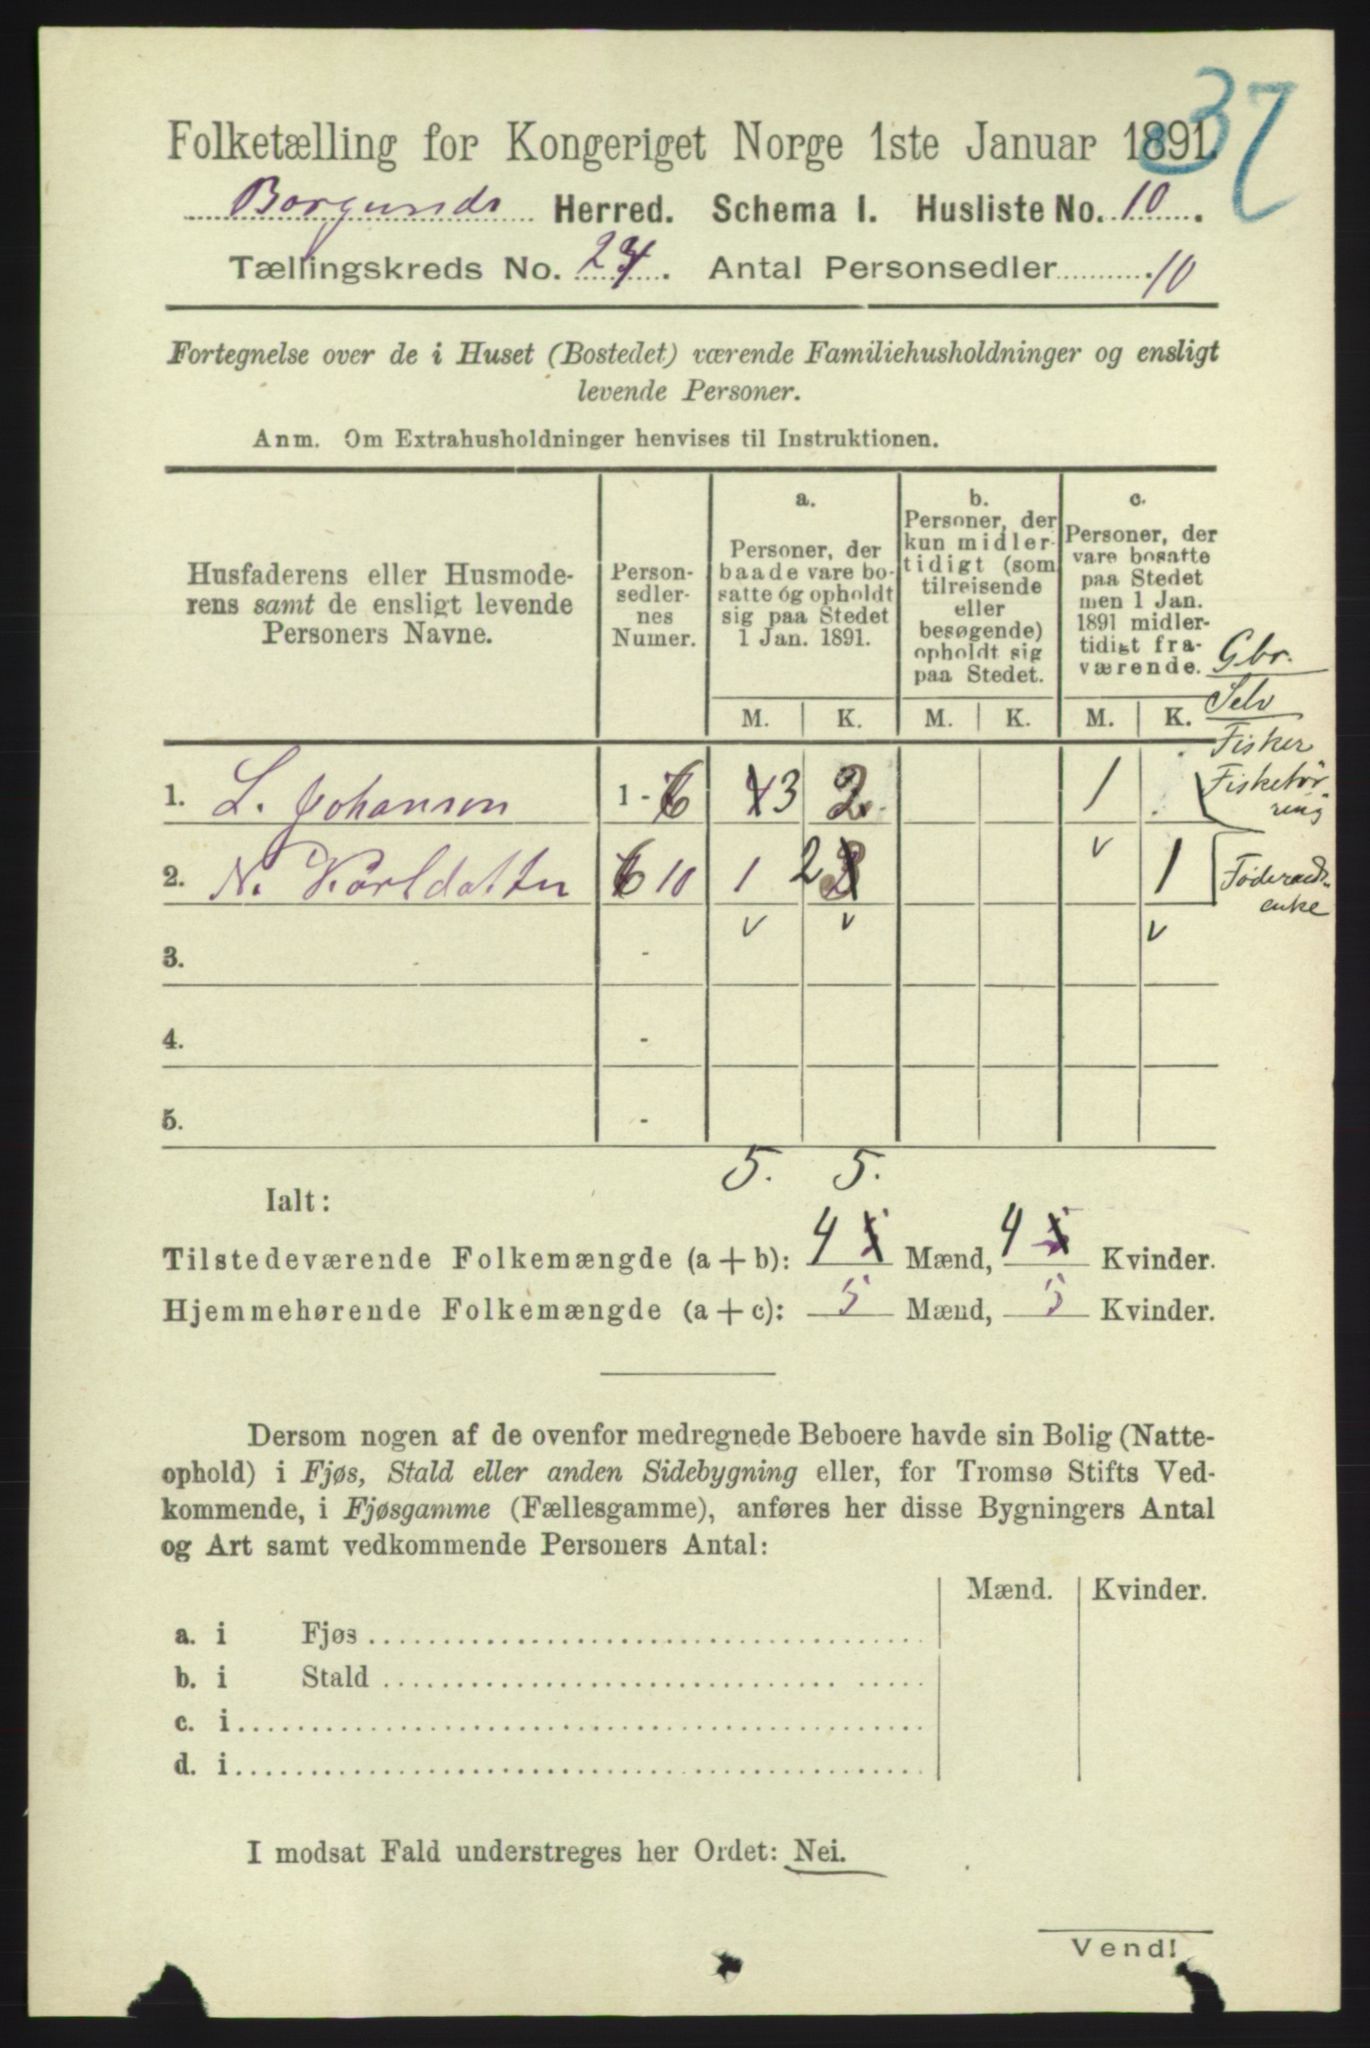 37
Folketælling for Kongeriget Norge 1ste Januar 1891.
Borgunds Herred. Schema I. Husliste No. 10.
Tællingskreds No. 24. Antal Personsedler 10
Fortegnelse over de i Huset (Bostedet) værende Familiehusholdninger og ensligt
levende Personer.
Anm. Om Extrahusholdninger henvises til Instruktionen.
Husfaderens eller Husmode-
rens samt de ensligt levende
Personers Navne.
Person-
sedler-
nes
Numer.
a.
Personer, der
baade vare bo-
satte og opholdt
sig paa Stedet
1 Jan. 1891.
b.
Personer, der
kun midler-
tidigt (som
tilreisende
eller
besøgende)
opholdt sig
paa Stedet.
c.
Personer, der
vare bosatte
paa Stedet
men 1 Jan.
1891 midler-
tidigt fra-
værende.
M. K. M. K. M. K.
Gbr.
Selv
Fisker
Fisketør-
ring
1. L. Johansen 1-6 4 3 2. 1
2. N. Karldatter 6 10 1 2 3 1
Føderaads-
enke
v v v v
3. -
4. -
5. -
5. 5.
Ialt:
Tilstedeværende Folkemængde (a + b): 4 5 Mænd, 4 5 Kvinder.
Hjemmehørende Folkemængde (a + c): 5 Mænd, 5 Kvinder.
Dersom nogen af de ovenfor medregnede Beboere havde sin Bolig (Natte-
ophold) i Fjøs, Stald eller anden Sidebygning eller, for Tromsø Stifts Ved-
kommende, i Fjøsgamme (Fællesgamme), anføres her disse Bygningers Antal
og Art samt vedkommende Personers Antal:
Mænd. Kvinder.
a. i Fjøs
b. i Stald
c. i
d. i
I modsat Fald understreges her Ordet: Nei.
Vend!